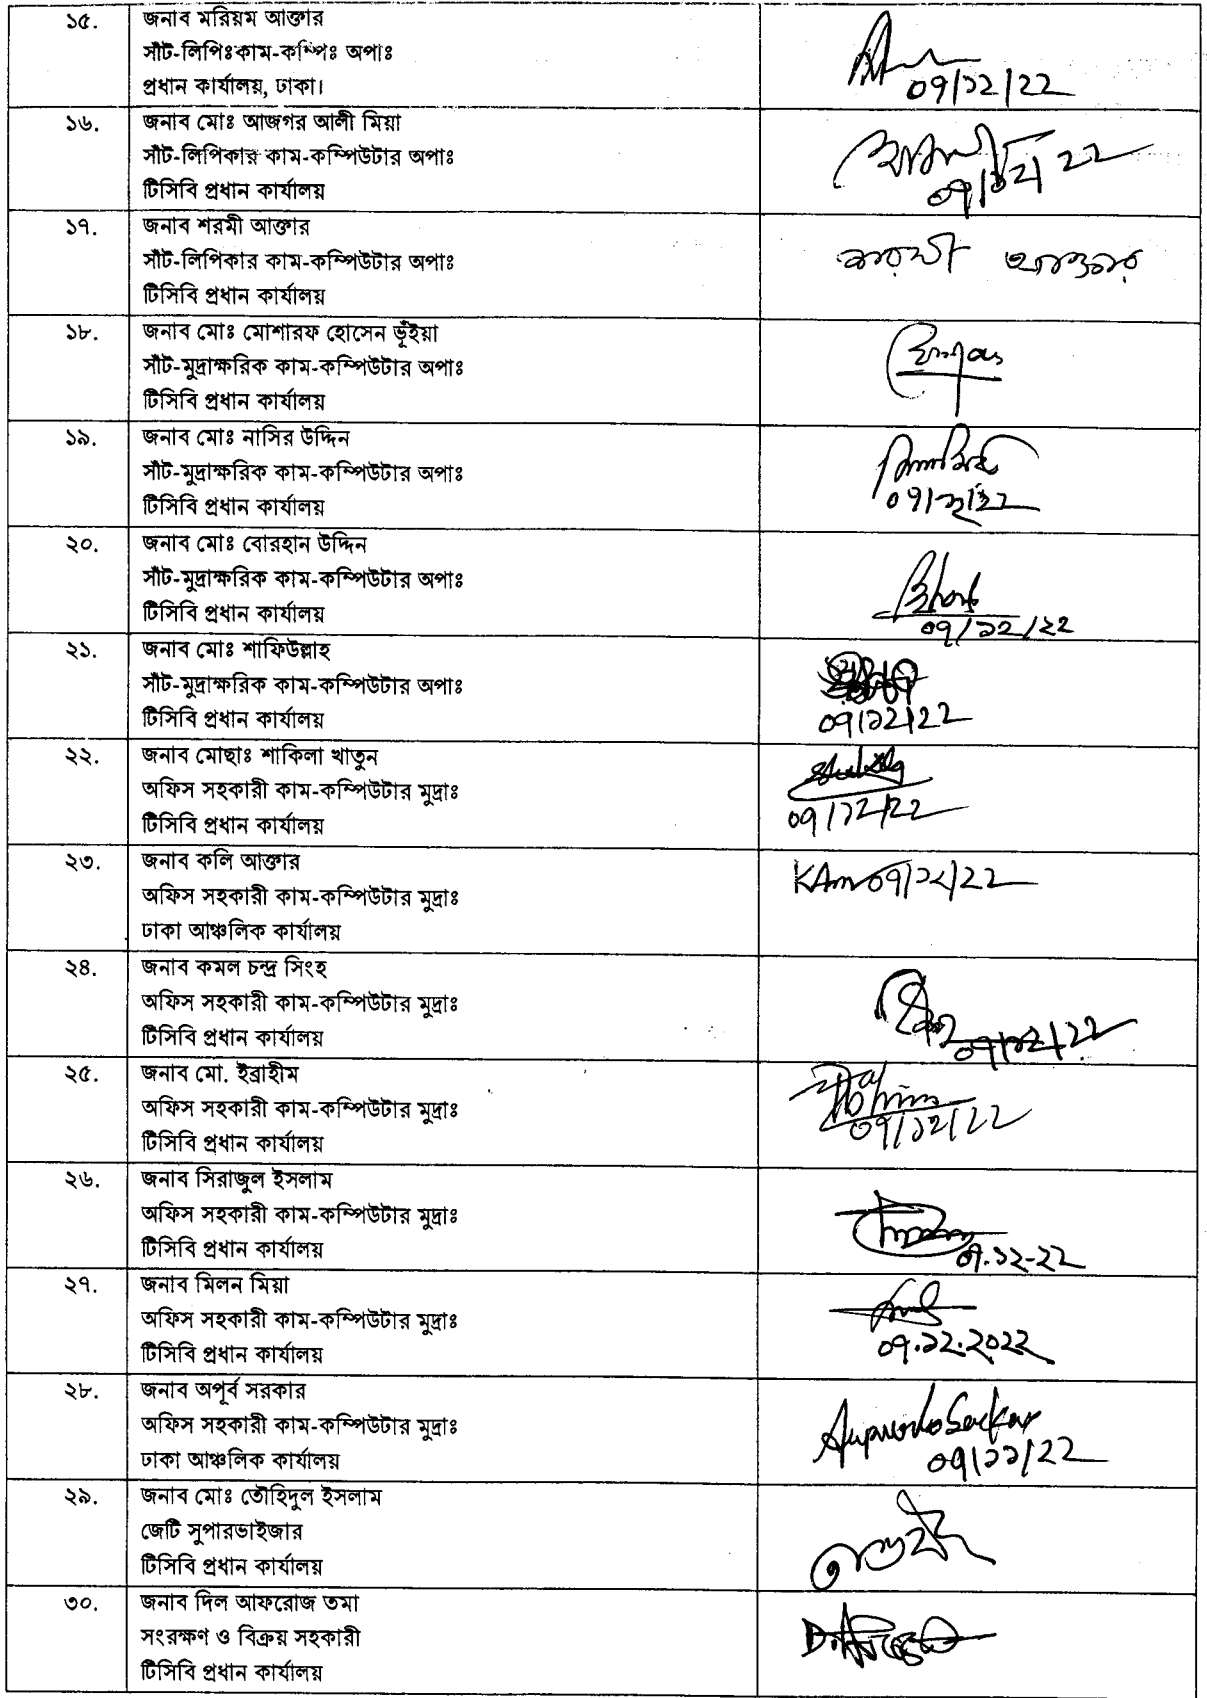 ১৫. জনাব মরিয়ম আক্তার
সাঁট-লিপিঃকাম-কম্পিঃ অপাঃ
প্রধান কার্যালয়, ঢাকা।
০৭/১২/২২
১৬. জনাব মোঃ আজগর আলী মিয়া
সাঁট-লিপিকার কাম-কম্পিউটার অপাঃ
টিসিবি প্রধান কার্যালয়
০৭/১২/২২
১৭. জনাব শরমী আক্তার
সাঁট-লিপিকার কাম-কম্পিউটার অপাঃ
টিসিবি প্রধান কার্যালয়
শরমী আক্তার
১৮. জনাব মোঃ মোশারফ হোসেন ভূঁইয়া
সাঁট-মুদ্রাক্ষরিক কাম-কম্পিউটার অপাঃ
টিসিবি প্রধান কার্যালয়
১৯. জনাব মোঃ নাসির উদ্দিন
সাঁট-মুদ্রাক্ষরিক কাম-কম্পিউটার অপাঃ
টিসিবি প্রধান কার্যালয়
২০. জনাব মোঃ বোরহান উদ্দিন
সাঁট-মুদ্রাক্ষরিক কাম-কম্পিউটার অপাঃ
টিসিবি প্রধান কার্যালয়
০৭/১২/২২
২১. জনাব মোঃ শাফিউল্লাহ
সাঁট-মুদ্রাক্ষরিক কাম-কম্পিউটার অপাঃ
টিসিবি প্রধান কার্যালয়
০৭/১২/২২
২২. জনাব মোছাঃ শাকিলা খাতুন
অফিস সহকারী কাম-কম্পিউটার মুদ্রাঃ
টিসিবি প্রধান কার্যালয়
০৭/১২/২২
২৩. জনাব কলি আক্তার
অফিস সহকারী কাম-কম্পিউটার মুদ্রাঃ
ঢাকা আঞ্চলিক কার্যালয়
০৭/১২/২২
২৪. জনাব কমল চন্দ্র সিংহ
অফিস সহকারী কাম-কম্পিউটার মুদ্রাঃ
টিসিবি প্রধান কার্যালয়
০৭/১২/২২
২৫. জনাব মো. ইব্রাহীম
অফিস সহকারী কাম-কম্পিউটার মুদ্রাঃ
টিসিবি প্রধান কার্যালয়
০৭/১২/২২
২৬. জনাব সিরাজুল ইসলাম
অফিস সহকারী কাম-কম্পিউটার মুদ্রাঃ
টিসিবি প্রধান কার্যালয়
০৭.১২-২২
২৭. জনাব মিলন মিয়া
অফিস সহকারী কাম-কম্পিউটার মুদ্রাঃ
টিসিবি প্রধান কার্যালয়
০৭.১২.২০২২
২৮. জনাব অপূর্ব সরকার
অফিস সহকারী কাম-কম্পিউটার মুদ্রাঃ
ঢাকা আঞ্চলিক কার্যালয়
Apurbo Sarkar
০৭/১১/২২
২৯. জনাব মোঃ তৌহিদুল ইসলাম
জেটি সুপারভাইজার
টিসিবি প্রধান কার্যালয়
৩০. জনাব দিল আফরোজ তমা
সংরক্ষণ ও বিক্রয় সহকারী
টিসিবি প্রধান কার্যালয়